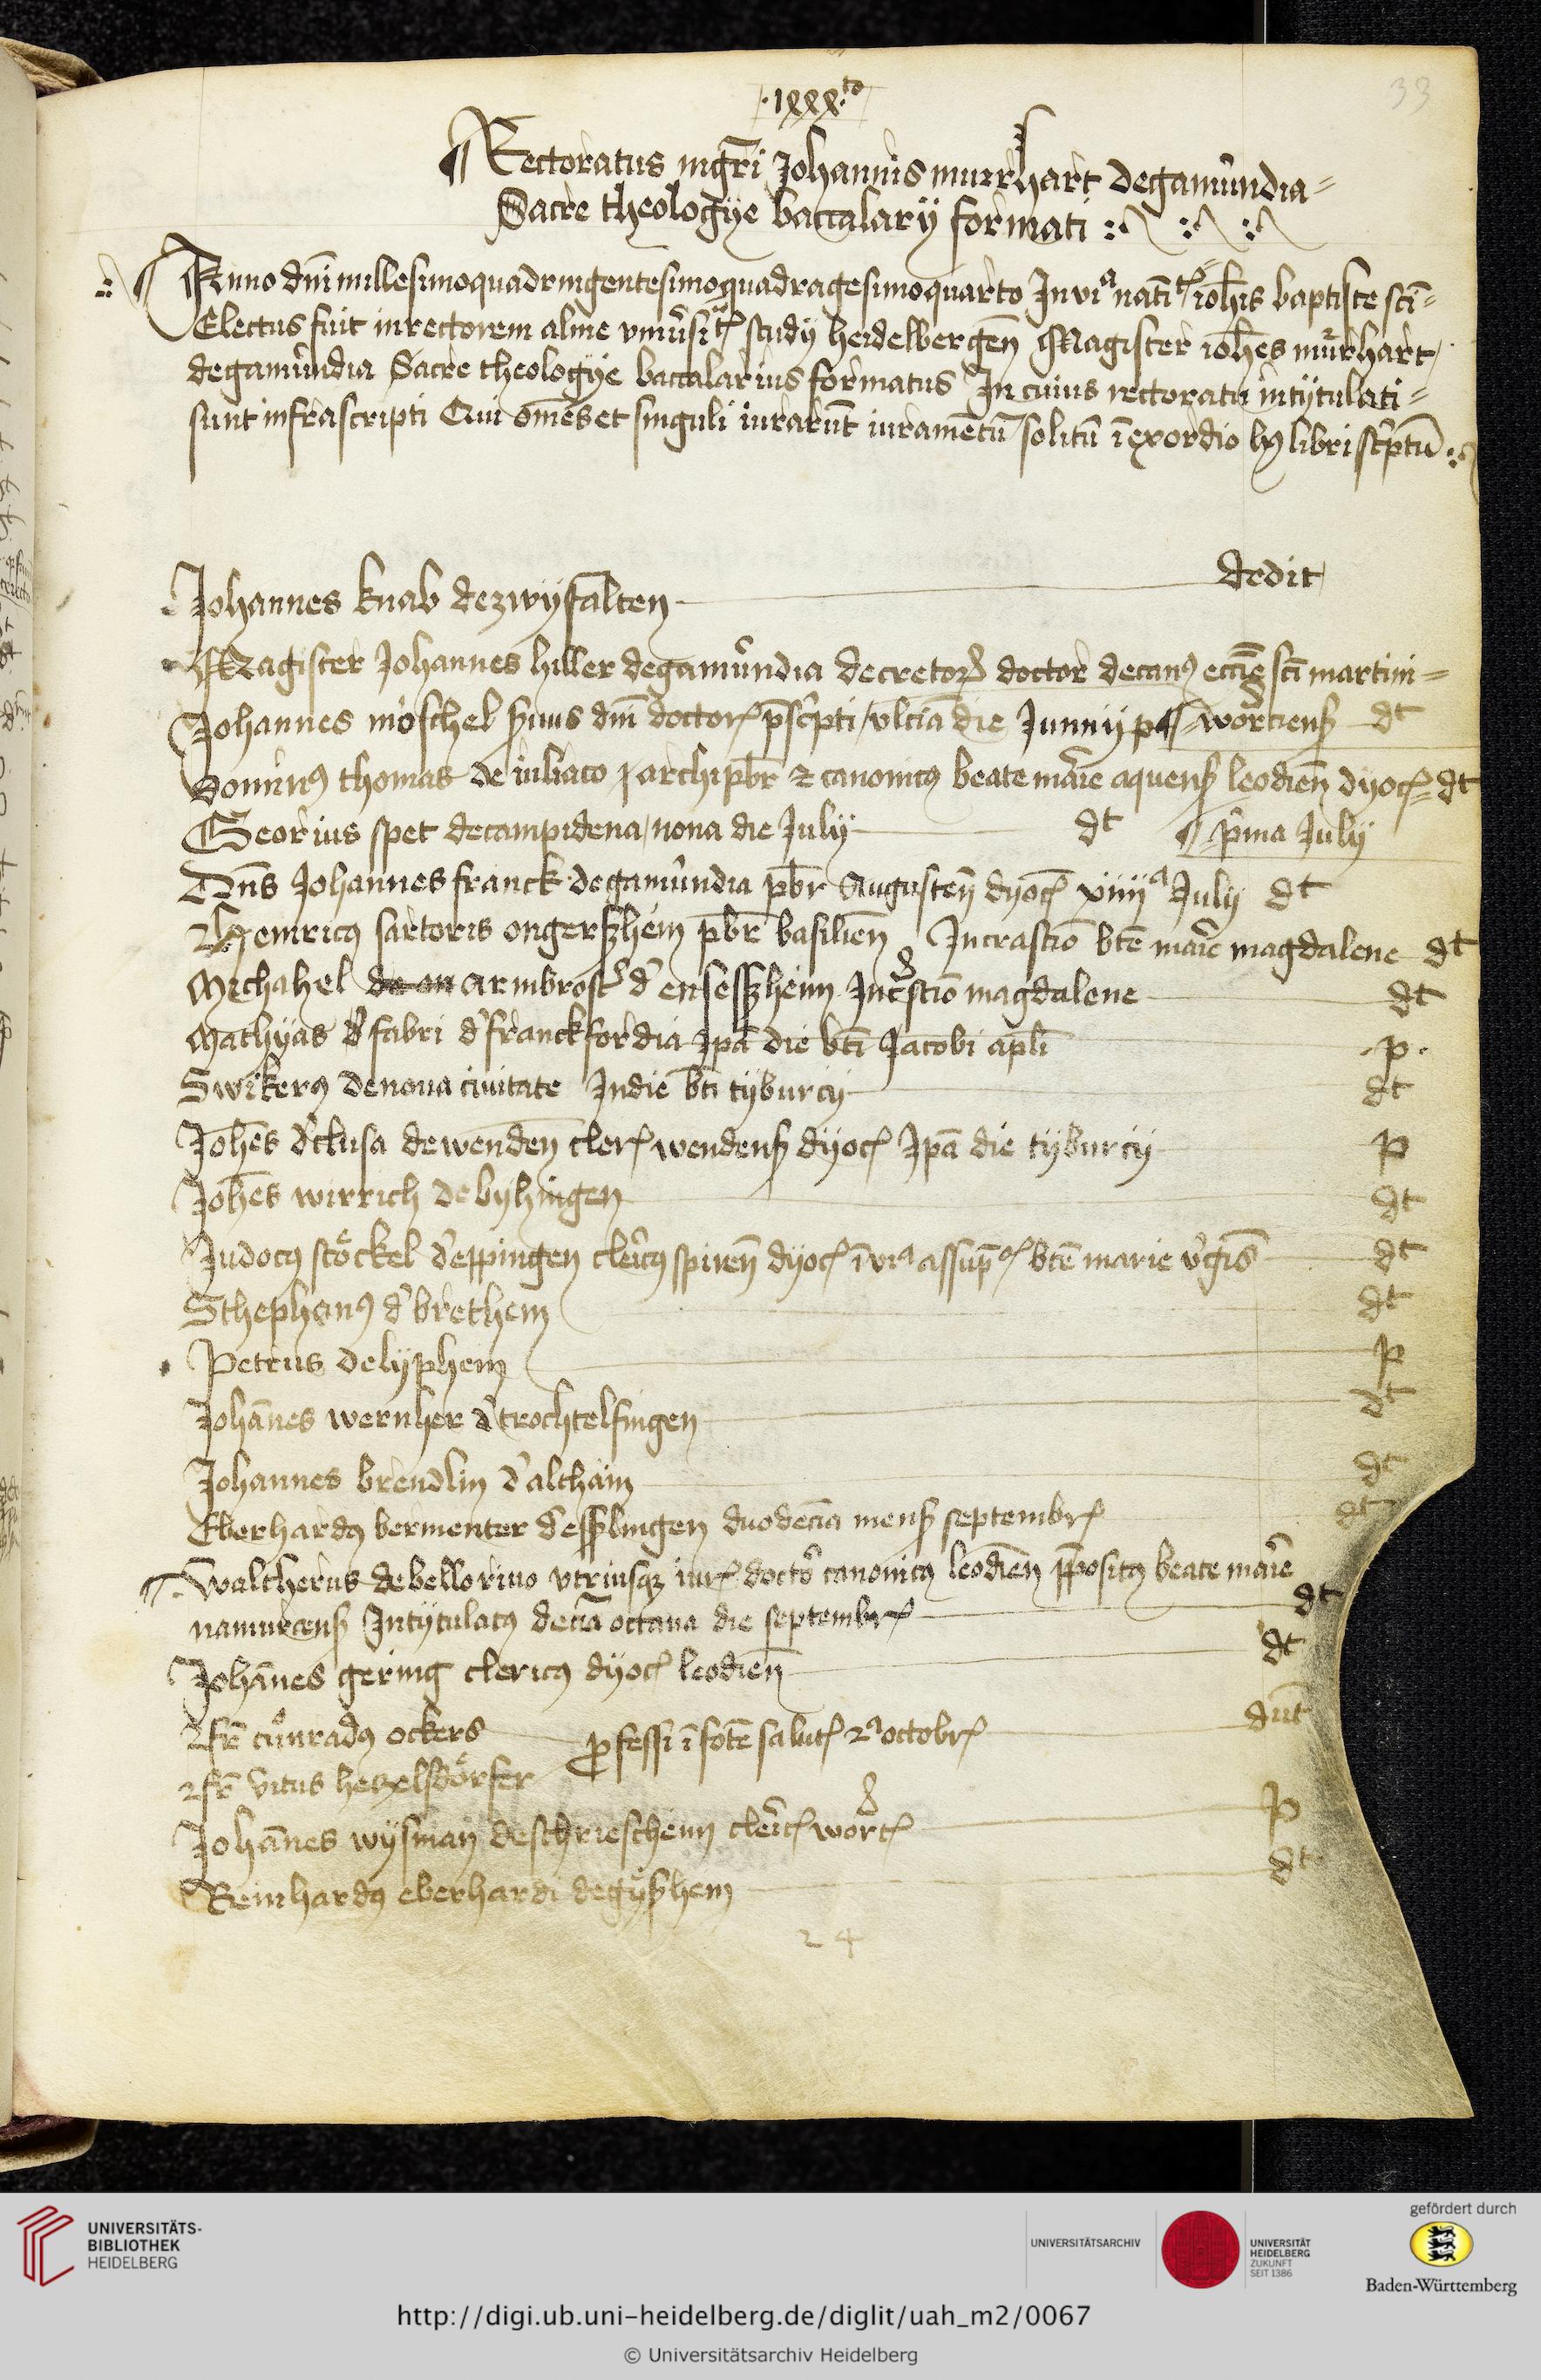 ·lxxx·to
33
¶ Rectoratus mgri Johannis murrhart de gamundia =
Sacre theologye baccalary formati
¶ Anno dni millesimoquadringentesimoquadragesimoquarto In vi^a natitis iohis baptiste sti =
Electus fuit in rectorem alme vniusitatis study heidelbergen Magister iohes murhart
de gamundia Sacre theologye baccalarius formatus In cuius rectoratu intytulati =
sunt infrascripti Qui omes et singuli iurarut iuramētū solitū ī exordio h9 libri sc'ptū
Johannes knab de zwyfalten dedit
Magister Johannes hiller de gamundia decretor doctor decan9 eccīe scī martini =
Johannes moschel ... dnī doctor p̄sc'pti vltīa die Junnii worciens dt
Domin9 thomas de iuliaco archipbr & canonic9 beate marie aquens leodien dyoc dt
Georius spet de campidena nona die July dt ¶ p'ma July
Dns Johannes franck de gamundia pbr Augusten dyoc xiiii^a July dt
Henric9 sartoris ongerszhem pbr basilien In crastio bte marie magdalene dt
Michahel armbrost' d' ensesszheim In c'stio magdalene dt
Mathyas fabri d' franckfordia Ipa die bti Jacobi apli ·p·
Swiker9 de noua ciuitate In die bti tyburcy dt
Johes d' clusa de wenden cler wendens dyoc Ipa die tyburcy p
Johes wirrich de byhingen dt
Judoc9 stöckel d' eppingen cleric9 spiren dyoc ī v^a assup bte marie v'gis dt
Sthephan9 d' brethem dt
Petrus de lypheim p
Johānes wernher d' trochtelfingen dt
Johannes brendlin d' althaim dt
Eberhard9 bermenter d' esszlingen duodecīa mens septembr dt
Waltherus de bellorino vtriusqz iur doctor canonic9 leodien pposit9 beate marie
namurcens Intytulat9 decīa octaua die septembr dt
Johānes gering cleric9 dyoc leodien dt
fr cunrad9 ockers pfessi ī fōte salut 2^a octobr dnt
fr vitus hetzelsdörfer
Johānes wysman de schriescheim cleric worc p
Reinhard9 eberhardi de gyszhem dt
24
UNIVERSITÄTS-
BIBLIOTHEK
HEIDELBERG
UNIVERSITÄTSARCHIV
UNIVERSITÄT
HEIDELBERG
ZUKUNFT
SEIT 1386
gefördert durch
Baden-Württemberg
http://digi.ub.uni-heidelberg.de/diglit/uah_m2/0067
© Universitätsarchiv Heidelberg